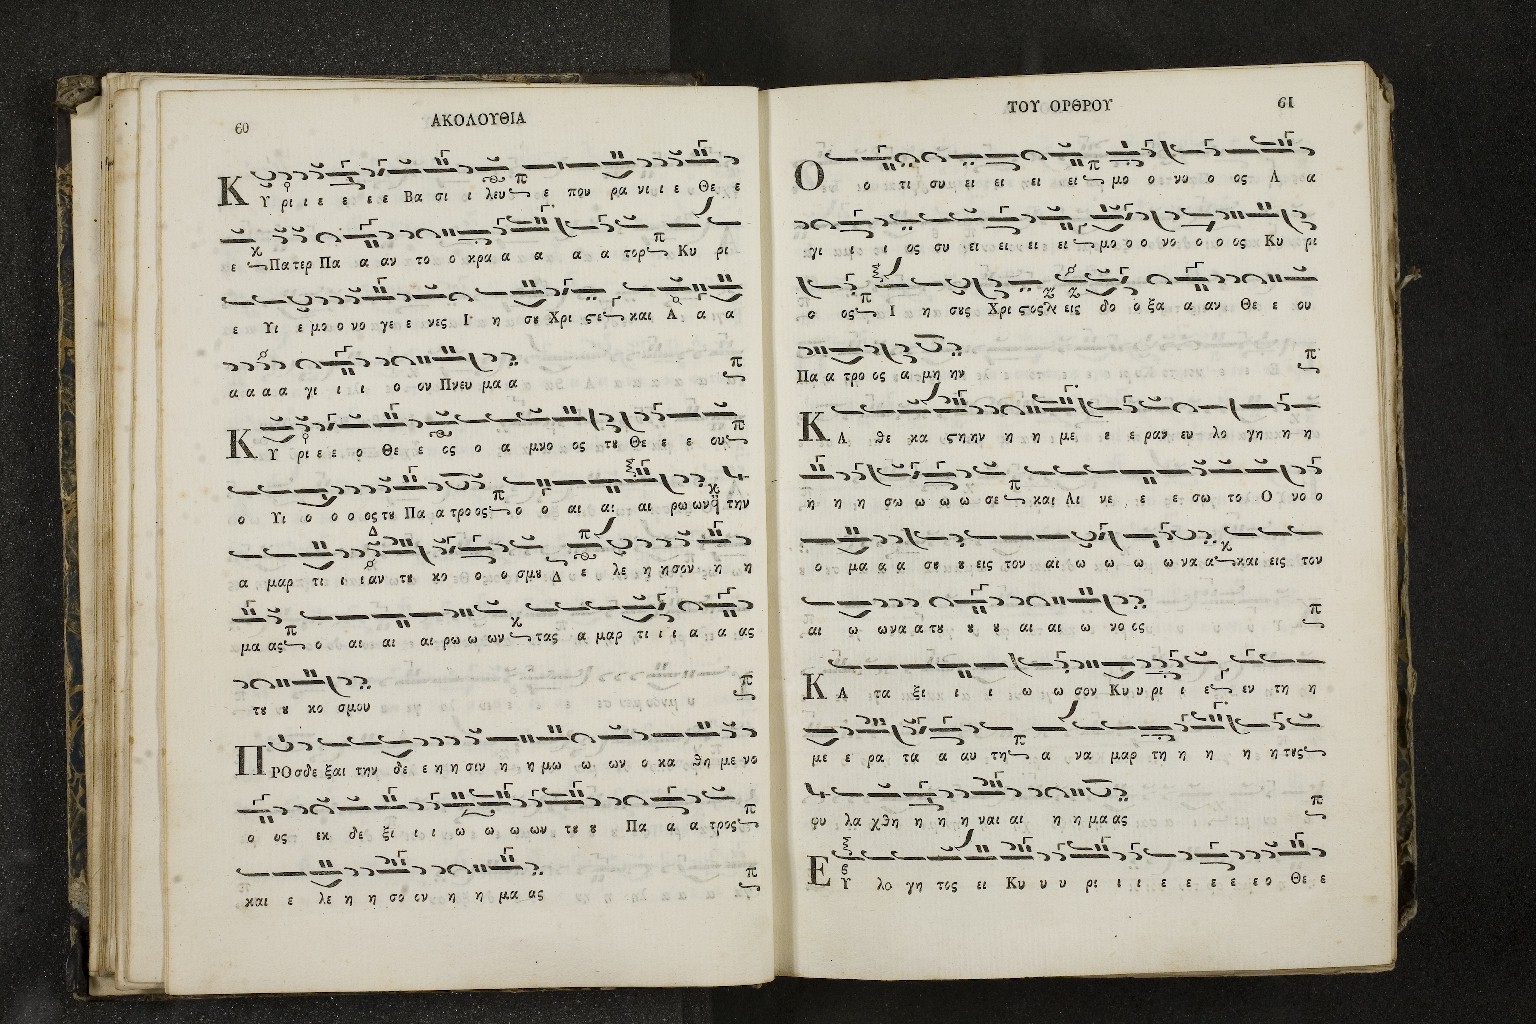 60
ΑΚΟΛΟΥΘΙΑ
Κ Υ ρι ι ε ε ε ε Βα σι ι λευ ε που ρα νι ι ε Θε ε
ε Πα τερ Πα α αν το ο κρα α α α α τορ Κυ ρι
ε Υι ε μο ο νο γε ε νες Ι η σου Χρι ςε και Α α α
α α α α γι ι ι ο ον Πνευ μα α
Κ Υ ρι ε ε ο Θε ε ος ο α μνο ος του Θε ε ε ου
ο Υι ο ο ο ος του Πα α τρο ος ο ο αι αι αι ρω ων την
α μαρ τι ι ι αν του κο ο ο σμου Δ ε λε η η σον η η
μα ας ο αι αι αι ρω ω ων τας α μαρ τι ι ι α α α ας
του ου κο σμου
Π ΡΟ σδε ξαι την δε ε η η σιν η η μω ω ων ο κα θη με νο
ο ος εκ δε ξι ι ι ω ω ω ων του ου Πα α α τρος
και ε λε η η σο ον η η μα ας
ΤΟΥ ΟΡΘΡΟΥ
61
Ο ο τι συ ει ει ει ει μο ο νο ο ος Α α
γι ι ι ος συ ει ει ει ει μο ο ο νο ο ο ος Κυ ρι
ο ος Ι η σους Χρι ςος εις δο ο ξα α αν Θε ε ου
Πα α τρο ος α μη ην
Κ Α θε κα ςη ην η η με ε ε ραν ευ λο γη η η
η η η σω ω ω ω σε και Αι νε ε ε σω το Ο νο ο
ο μα α α σου ου εις τον αι ω ω ω ω να α και εις τον
αι ω ω να α του ου ου αι αι ω νο ος
Κ Α τα ξι ι ι ω ω σον Κυ υ ρι ι ε εν τη η
με ε ρα τα α αυ τη α να μαρ τη η η η η τους
φυ λα χθη η η η ναι αι η η μα ας
Ε Υ λο γη τος ει Κυ υ υ ρι ι ι ε ε ε ε ε ο Θε ε